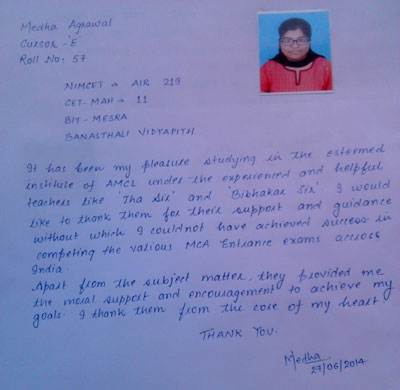 Medha Agrawal
Cursor-'E'
Roll No: 57
NIMCET → AIR 219
CET-MAH → 11
BIT-MESRA
BANASTHALI VIDYAPITH
It has been my pleasure studying in the esteemed
institute of AMCL under the experienced and helpful
teachers like 'Jha Sir' and 'Bibhakar Sir'. I would
like to thank them for their support and guidance
without which I couldnot have achieved success in
competing the various MCA Entrance exams accross
India.
Apart from the subject matter, they provided me
the moral support and encouragement to achieve my
goals. I thank them from the core of my heart.
THANK YOU.
Medha
27/06/2014